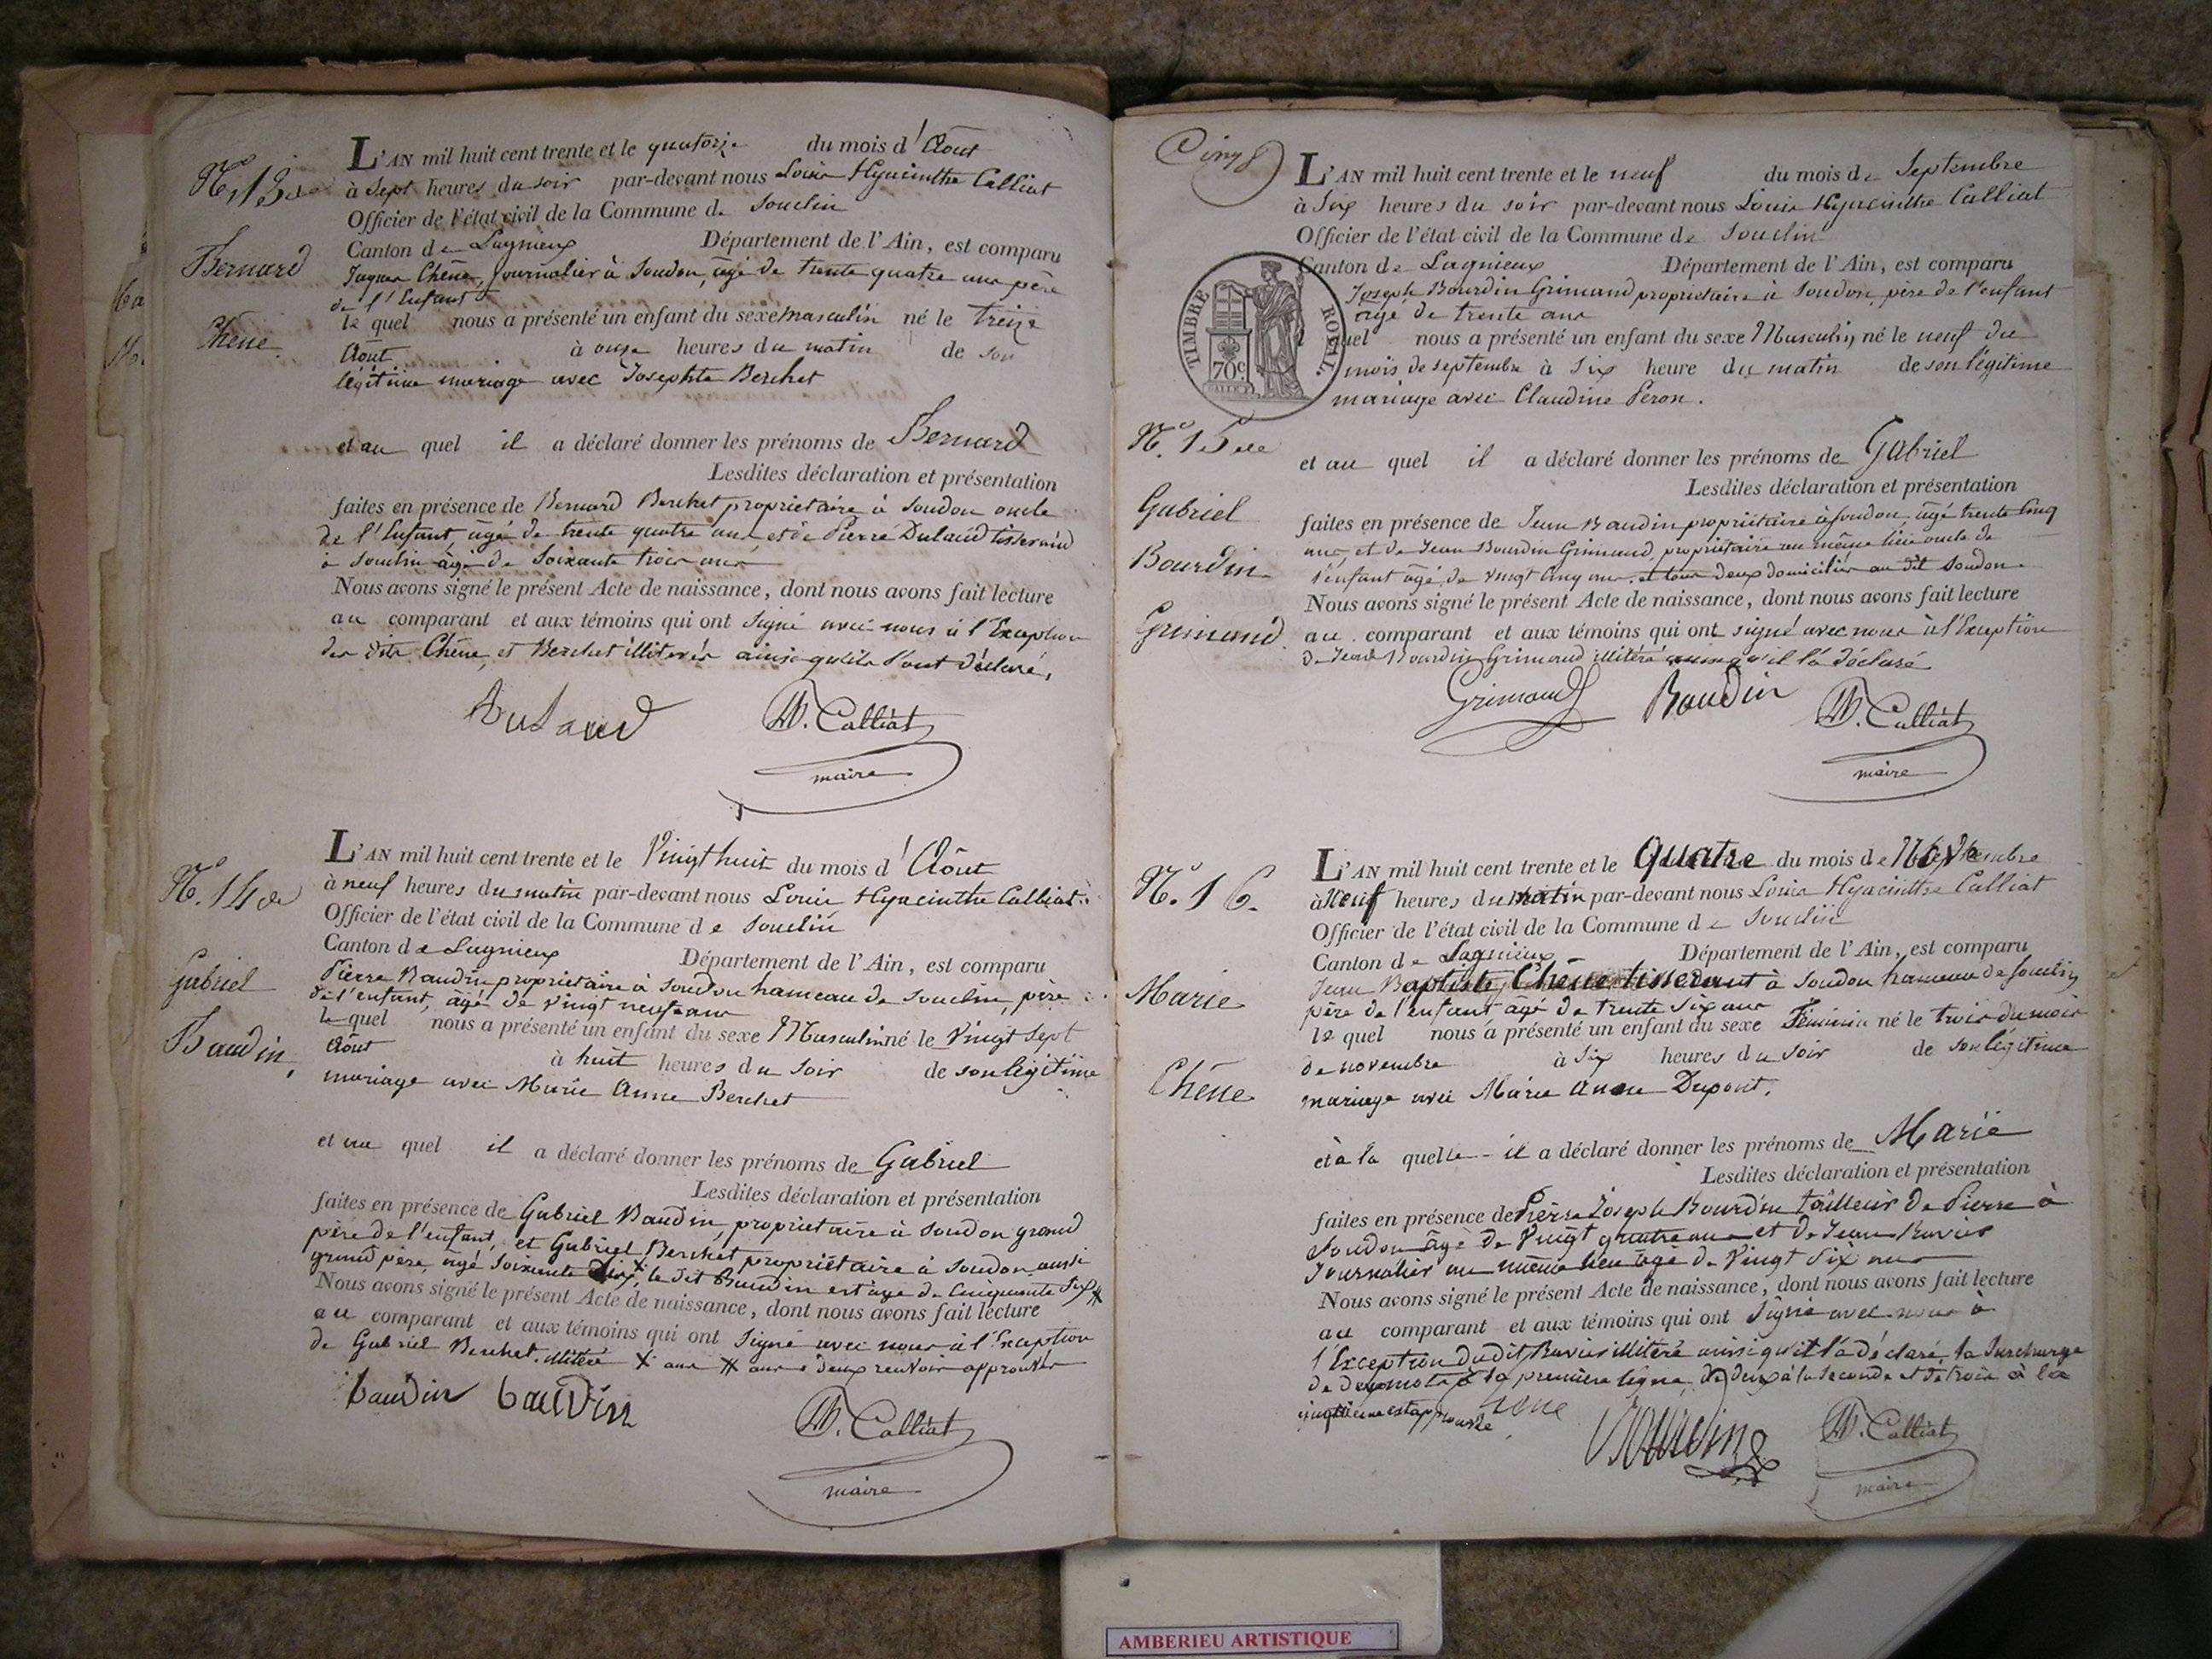 N.° 13
Bernard
Chêne.
L'AN mil huit cent trente et le quatorze du mois d'Aôut
à sept heures du soir par-devant nous Louis Hyacinthe Calliat
Officier de l'état civil de la Commune de Souclin
Canton de Lagnieux Département de l'Ain, est comparu
Jaques Chêne, journalier à Soudon, âgé de trente quatre ans père
de l'Enfant
le quel nous a présenté un enfant du sexe masculin né le treize
Aôut à onze heures du matin de son
légitime mariage avec Josephte Berchet
et au quel il a déclaré donner les prénoms de Bernard
Lesdites déclaration et présentation
faites en présence de Bernard Berchet propriétaire à Soudon oncle
de l'Enfant, âgé de trente quatre ans et de Pierre Dulaud tisserand
à Souclin âgé de Soixante trois ans
Nous avons signé le présent Acte de naissance, dont nous avons fait lecture
au comparant et aux témoins qui ont signé avec nous à l'Exception
des dits Chêne, et Berchet illiterés ainsi qu'ils l'ont déclaré,
Dulaud
H. Calliat
maire
N.° 14
Gabriel
Baudin,
L'AN mil huit cent trente et le Vingt huit du mois d'Aôut
à neuf heures du matin par-devant nous Louis Hyacinthe Calliat
Officier de l'état civil de la Commune de Souclin
Canton de Lagnieux Département de l'Ain, est comparu
Pierre Baudin propriétaire à Soudon hameau de Souclin, père
de l'enfant, âgé de vingt neuf ans
le quel nous a présenté un enfant du sexe Masculin né le Vingt Sept
Aôut à huit heures du soir de son légitime
mariage avec Marie Anne Berchet
et au quel il a déclaré donner les prénoms de Gabriel
Lesdites déclaration et présentation
faites en présence de Gabriel Baudin, propriétaire à Soudon grand
père de l'enfant, et Gabriel Berchet propriétaire à Soudon aussi
grand père, âgé soixante dix X, le dit Baudin est âgé de Cinquante Six #
Nous avons signé le présent Acte de naissance, dont nous avons fait lecture
au comparant et aux témoins qui ont signé avec nous à l'Exception
de Gabriel Berchet. illitéré X ans # ans deux renvois approuvés
baudin baudin
H. Calliat
maire
Cinq
TIMBRE ROYAL.
70c
L'AN mil huit cent trente et le neuf du mois de Septembre
à Six heures du soir par-devant nous Louis Hyacinthe Calliat
Officier de l'état civil de la Commune de Souclin
Canton de Lagnieux Département de l'Ain, est comparu
Joseph Bourdin Grimaud propriétaire à Soudon, père de l'enfant
âgé de trente ans
quel nous a présenté un enfant du sexe Masculin né le neuf du
mois de septembre à Six heure du matin de son légitime
mariage avec Claudine Peron.
N.° 15
Gabriel
Bourdin
Grimaud.
et au quel il a déclaré donner les prénoms de Gabriel
Lesdites déclaration et présentation
faites en présence de Jean Baudin propriétaire à Soudon, âgé trente Cinq
ans, et de Jean Bourdin Grimaud, propriétaire au même lieu oncle de
l'enfant âgé de vingt Cinq ans. et tous deux domiciliés au dit Soudon
Nous avons signé le présent Acte de naissance, dont nous avons fait lecture
au comparant et aux témoins qui ont signé avec nous à l'Exception
de Jean Bourdin Grimaud illitéré ainsi qu'il l'a déclaré
Grimaud Baudin H. Calliat
maire
N.° 16.
Marie
Chêne
L'AN mil huit cent trente et le Quatre du mois de Novembre
à Neuf heures du matin par-devant nous Louis Hyacinthe Calliat
Officier de l'état civil de la Commune de Souclin
Canton de Lagnieux Département de l'Ain, est comparu
Jean Baptiste Chêne tisserant à Soudon hameau de Souclin
père de l'enfant âgé de trente Six ans
le quel nous a présenté un enfant du sexe Féminin né le trois du mois
de novembre à Six heures du soir de son légitime
mariage avec Marie Anne Dupont.
et à la quelle il a déclaré donner les prénoms de Marie
Lesdites déclaration et présentation
faites en présence de Pierre Joseph Bourdin tailleur de Pierre à
Soudon âgé de Vingt quatre ans et de Jean
Journalier au même lieu âgé de Vingt Six ans
Nous avons signé le présent Acte de naissance, dont nous avons fait lecture
au comparant et aux témoins qui ont Signé avec nous à
l'Exception du dit illitéré ainsi qu'il l'a déclaré, la Surcharge
de deux mots à la première ligne, de deux à la Seconde et de trois à la
cinquième est approuvée
Bourdin
H. Calliat
maire
AMBERIEU ARTISTIQUE